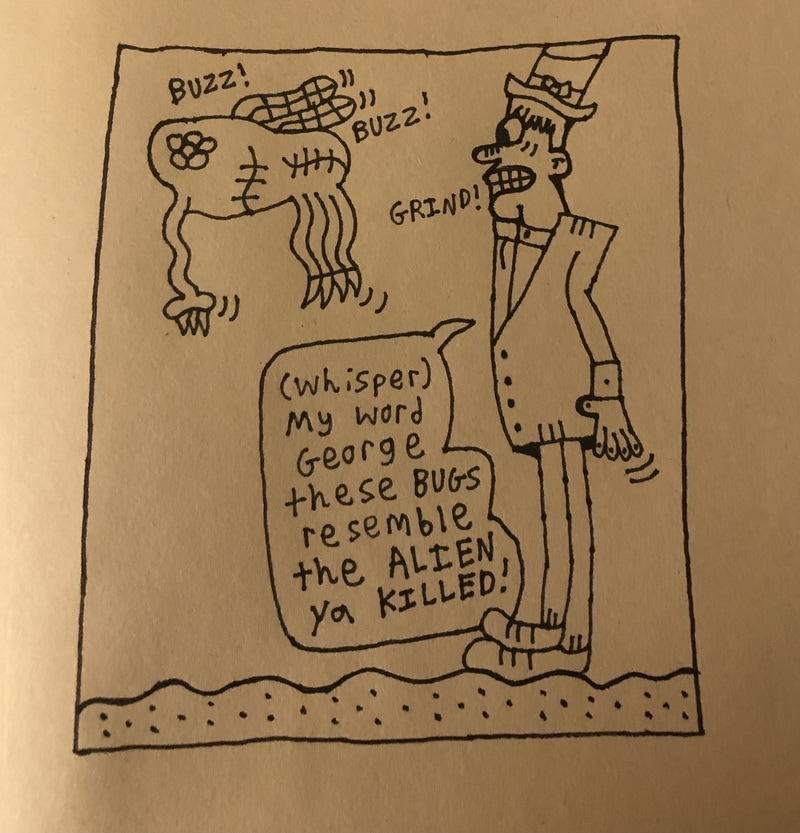 BUZZ!
BUZZ!
GRIND!
(whisper)
My word
George
these BUGS
resemble
the ALIEN
ya KILLED!